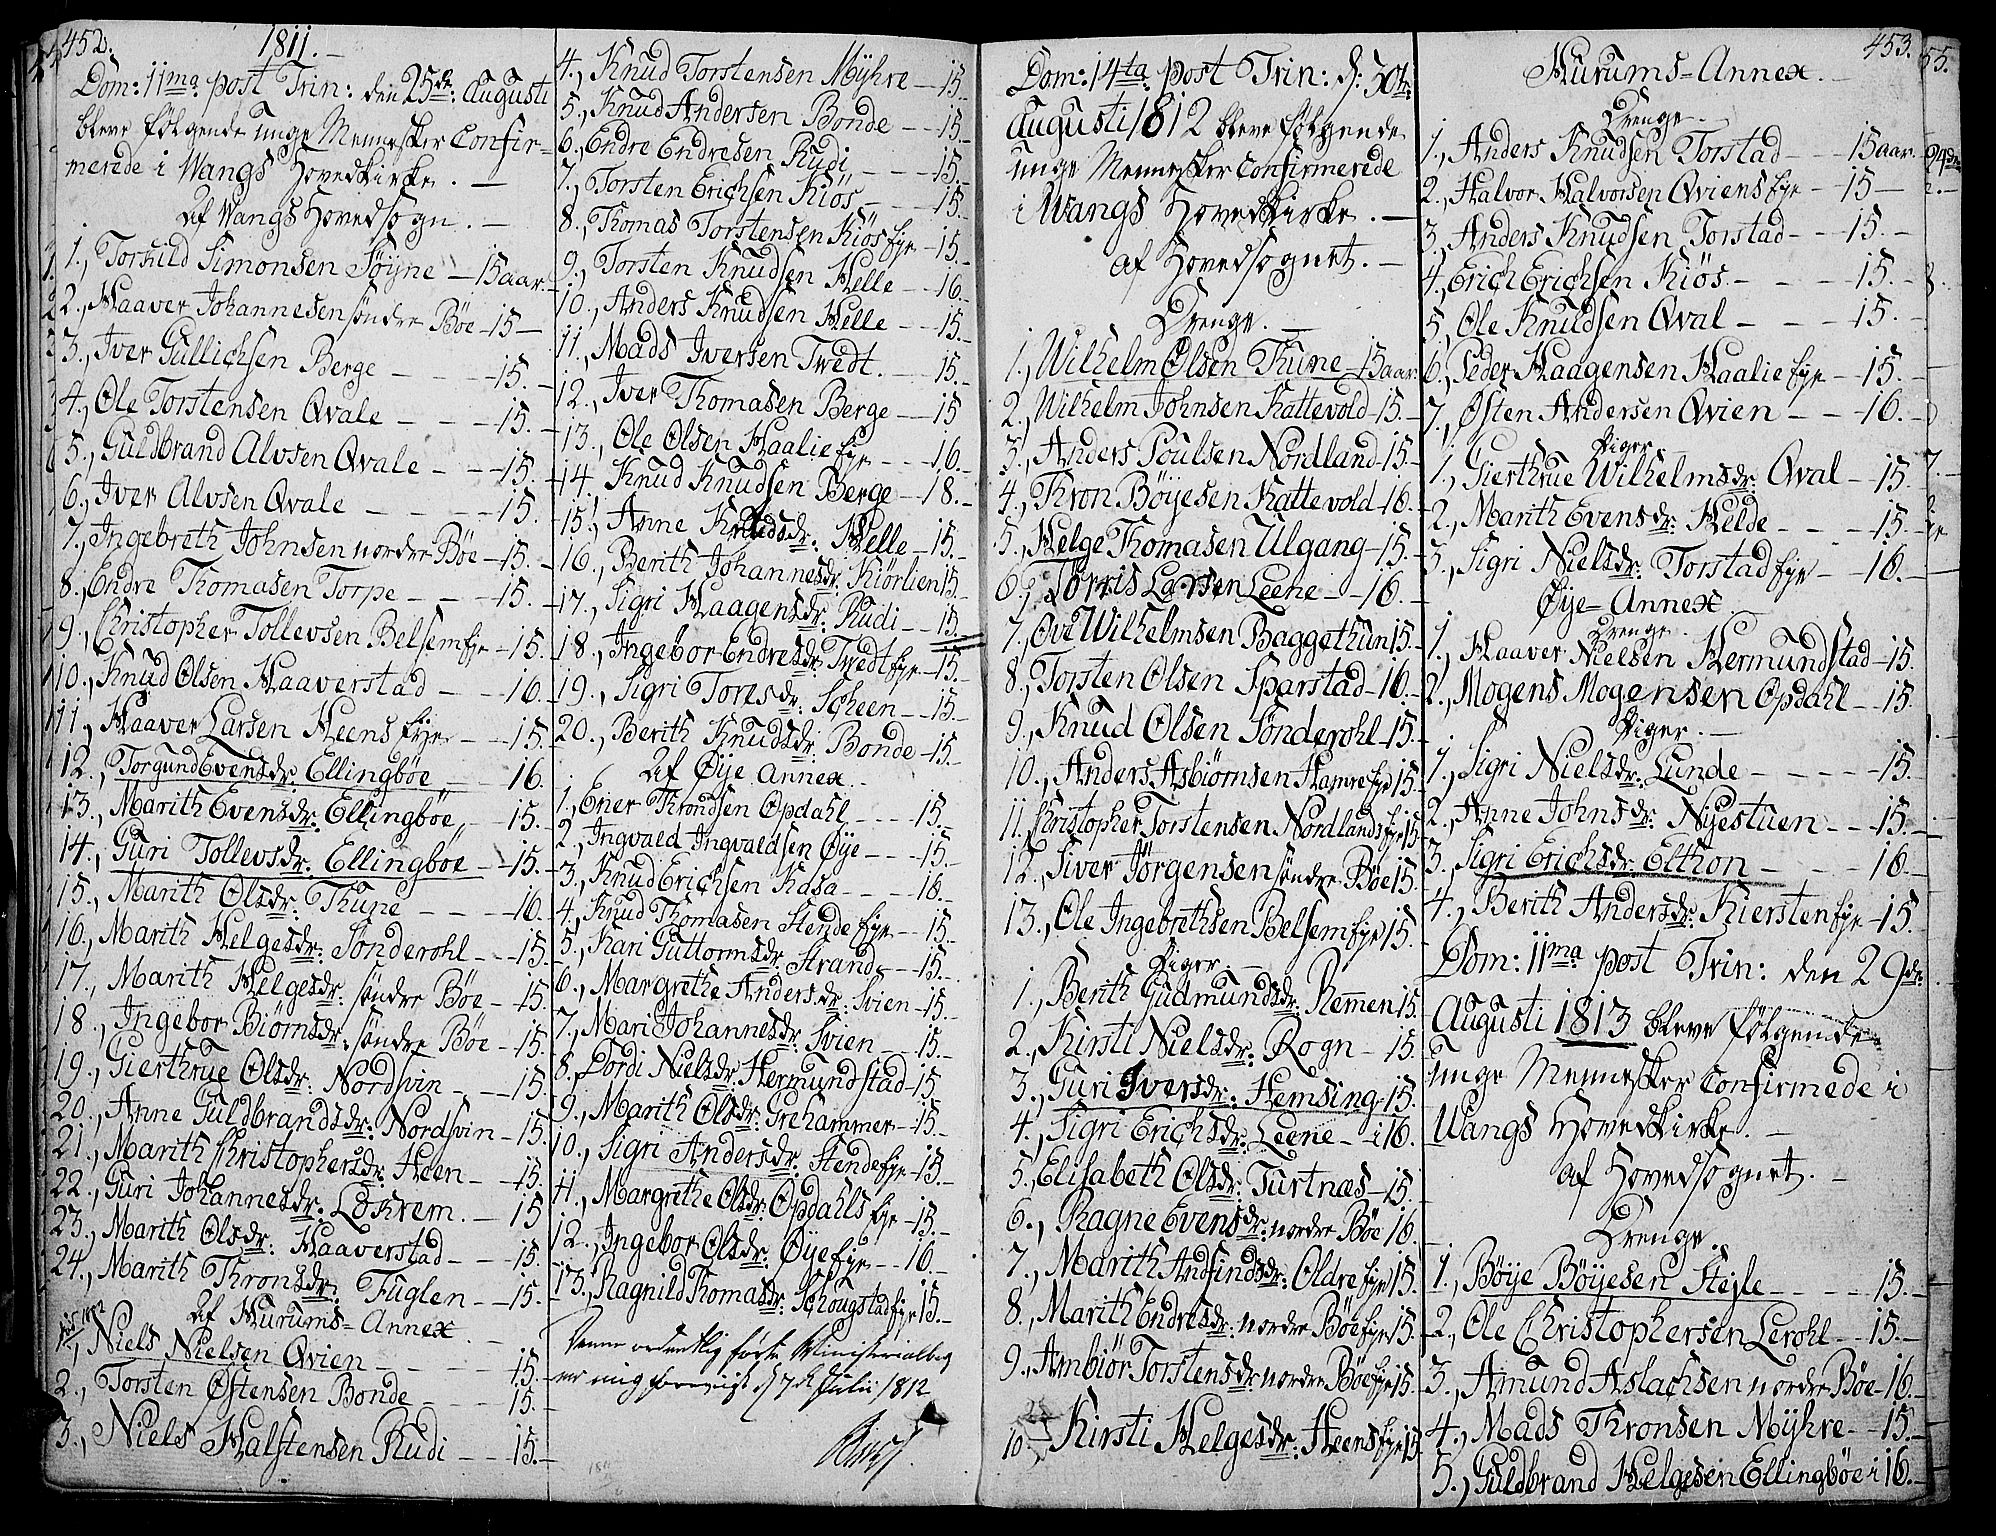 452.
1811.
Dom: 11ma post Trin: den 25de Augusti
bleve følgende unge Mennesker Confir-
merede i Wangs Hovedkirke.
af Wangs Hovedsogn.
1., Torkild Simonsen Søyne - 15 aar.
2., Haaver Johannesen søndre Bøe - 15 -
3., Iver Gullichsen Berge - 15. -
4., Ole Torstensen Qvale - - - 15. -
5., Guldbrand Alvsen Qvale - - - 15. -
6., Iver Alvsen Qvale - - - 15.
7., Ingebreth Johnsen nordre Bøe - 15. -
8., Endre Thomasen Torpe - - - 15. -
9., Christopher Tollevsen Belsem Eye - 15. -
10., Knud Olsen Haaverstad - - - 16. -
11., Haaver Larsen Heens Eye - - - 15. -
12., Torgund Evensdr. Ellingbøe - - 16.
13., Marith Evensdr. Ellingbøe - - 15. -
14., Guri Tollevsdr. Ellingbøe - - 15. -
15., Marith Olsdr. Thune - - - 16. -
16., Marith Helgesdr. Sønderohl - - 15. -
17., Marith Helgesdr. søndre Bøe - 15.
18., Ingebor Biørnsdr. søndre Bøe - 15. -
19., Gierthrue Olsdr. Nordsvin - - 15. -
20., Anne Guldbrandsdr. Nordsvin - 15.
21., Marith Christophersdr. Heen - - 15. -
22., Guri Johannesdr. Løkrem. - 15
23., Marith Olsdr. Haaverstad - - - 15. -
24., Marith Thronsdr. Fuglen - - 15. -
af Hurums-Annex.
1., Niels Nielsen Qvien - - - 15. -
2., Torsten Østensen Bonde - - - 15. -
3., Niels Halstensen Rudi - - - 15. -
4., Knud Torstensen Mÿhre - 15. -
5., Knud Andersen Bonde - - 15. -
6., Endre Endresen Rudi - - - 15. -
7., Torsten Erichsen Kiøs - - - 15. -
8., Thomas Torstensen Kiøs Eye - 15. -
9., Torsten Knudsen Helle - - 16. -
10., Anders Knudsen Helle - - 15. -
11., Mads Iversen Twedt. - - 15. -
12., Iver Thomasen Berge - - 15
13., Ole Olsen Haalie Eye - - - 16. -
14., Knud Knudsen Berge - - 18. -
15., Anne Knudsdr. Helle - 15. -
16., Berith Johannesdr. Kiørlien 15. -
17., Sigri Haagensdr. Rudi - - 15. -
18., Ingebor Endresdr. Twedt Eye - 15. -
19., Sigri Toresdr. Scheen - - 15. -
20., Berith Knudsdr. Bonde - 15. -
af Øye Annex.
1., Ener Throndsen Opdahl - - - 15. -
2., Ingvald Ingvaldsen Øye - - - 15. -
3., Knud Erichsen Kasa - - - 16. -
4., Knud Thomasen Stende Eye - - 15. -
5., Kari Guttormsdr. Strand - - 15. -
6., Margrethe Andersdr. Svien - 15. -
7., Mari Johannesdr. Svien - - 15. -
8., Tordi Nielsdr. Hermundstad - 15. -
9., Marith Olsdr. Grehammer - 15. -
10., Sigri Andersdr. Stende Eye - 15. -
11., Margrethe Olsdr. Opdahls Eye - 15. -
12., Ingebor Olsdr. Øye Eye - - 16. -
13., Ragnild Thomasdr. Schougstad Eye 15. -
Denne ordentlig førte Ministerialbog
er mig foreviist d 7de Julii 1812
453.
Dom: 14ta post Trin: d: 30te
Augusti 1812 bleve følgende
unge Mennesker Confirmerede
i Wangs Hovedkirke. -
af Hovedsognet. -
Drenge. -
1., Wilhelm Olsen Thune - 15 aar.
2., Wilhelm Johnsen Kattevold - 15. -
3., Anders Poulsen Nordland - 15. -
4., Thron Böÿesen Kattevold - 16. -
5., Helge Thomasen Ulgang - 15. -
6., Torris Larsen Leene - - 16. -
7., Ove Wilhelmsen Baggethun 15. -
8., Torsten Olsen Sparstad - 16. -
9., Knud Olsen Sønderohl - 15. -
10., Anders Asbiørnsen Hamre Eye 15. -
11., Christopher Torstensen Nordlands Eye 15.
12., Siver Jörgensen søndre Bøe 15.
13., Ole Ingebrethsen Belsem Eye 15.
Piger. -
1., Berith Gudmundsdr. Remmen 15.
2., Kirsti Nielsdr. Rogn - 15. -
3., Guri Iversdr. Hemsing - 15. -
4., Sigri Erichsdr. Leene - - 16. -
5., Elisabeth Olsdr. Turtnæs - 15. -
6., Ragne Evensdr. nordre Bøe 16.
7., Marith Andfindsdr. Oldre Eye 15.
8., Marith Endresdr. nordre Bøe Eye 15. -
9., Ambiör Torstensdr. nordre Bøe Eye 15. -
10., Kirsti Helgesdr. Heens Eye 15.
Hurums-Annex. -
Drenge. -
1., Anders Knudsen Torstad - - - 15 aar. -
2., Halvor Halvorsen Qviens Eye - 15 -
3., Anders Knudsen Torstad - - 15. -
4., Erich Erichsen Kiøs. - - - 15. -
5., Ole Knudsen Qval - - - 15. -
6., Peder Haagensen Haalie Eye - - 15. -
7., Østen Andersen Qvien - - - 16. -
Piger.
1., Gierthrue Wilhelmsdr. Qval - 15. -
2., Marith Evensdr. Helde - - - 15. -
3., Sigri Nielsdr. Torstad Eye - - 16. -
Øye-Annex.
Drenge.
1., Haaver Nielsen Hermundstad - 15.
2., Mogens Mogensen Opdahl - - 15.
Piger. -
1., Sigri Nielsdr. Lunde - - - - 15.
2., Anne Johnsdr. Nÿestuen - - 15. -
3., Sigri Erichsdr. Elthon - - - 16. -
4., Berith Andersdr. Kiersten Eye - 15.
Dom: 11ma post Trin: den 29de
Augusti 1813 bleve følgende
unge Mennesker Confirmede i
Wangs Hovedkirke. -
af Hovedsognet. -
Drenge.
1., Böÿe Böÿesen Stejle - - - 15. -
2., Ole Christophersen Lerohl - - 15. -
3., Amund Aslachsen nordre Bøe - 16. -
4., Mads Thronsen Mÿhre - - 15. -
5., Guldbrand Helgesen Ellingbøe i 16. -